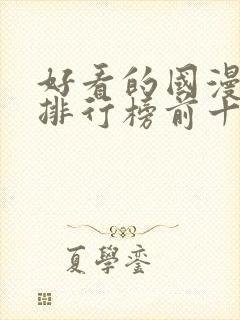 好看的國漫
排行榜前十
夏學銮